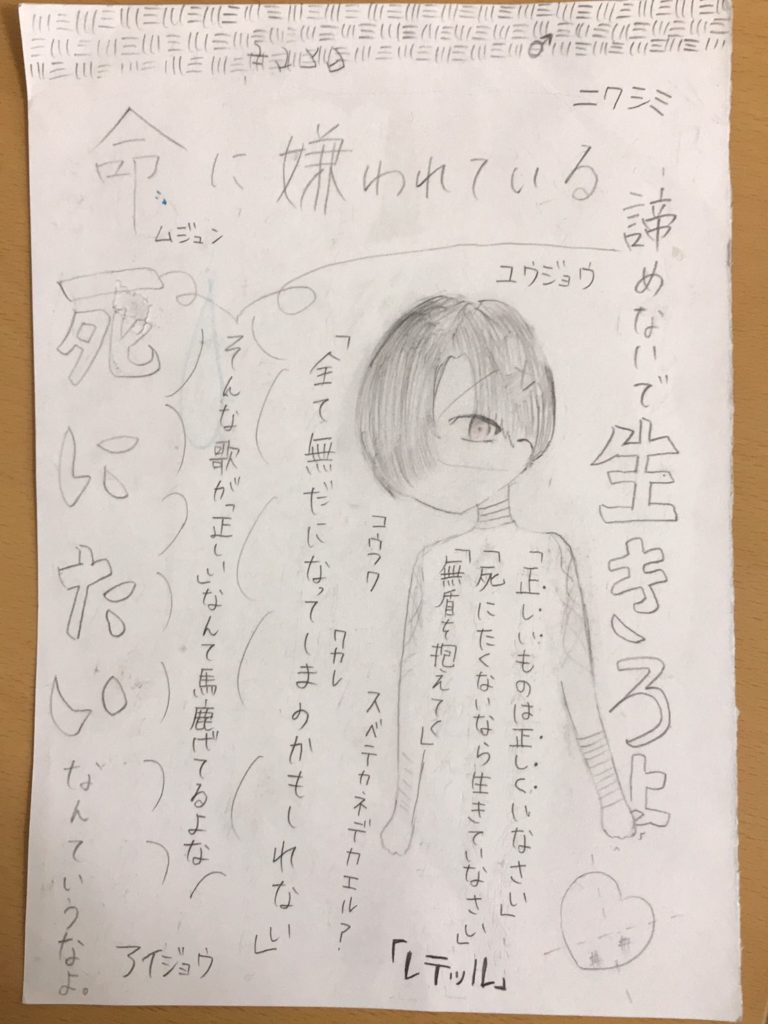 ニクシミ
命に嫌われている
ムジュン
ユウジョウ
諦めないで生きろよ
「正しいものは正しくいなさい」
「死にたくないなら生きていなさい」
「無盾を抱えてく」
コウフク
ワカレ
スベテカネデカエル？
「全て無だになってしまのかもしれない」
そんな歌が「正しい」なんて馬鹿げてるよな
死にたいなんていうなよ。
アイジョウ
「レテッル」